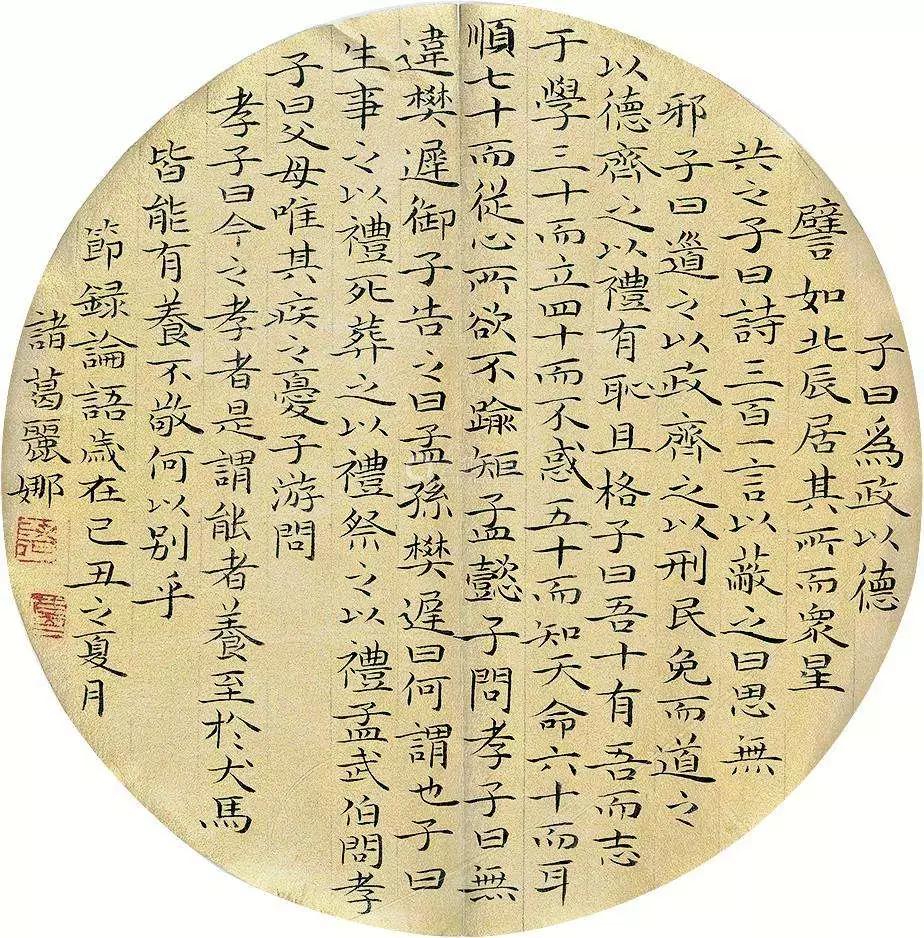 子曰爲政以德
譬如北辰居其所而衆星
共之子曰詩三百一言以蔽之曰思無
邪子曰道之以政齊之以刑民免而道之
以德齊之以禮有恥且格子曰吾十有吾而志
于學三十而立四十而不惑五十而知天命六十而耳
順七十而從心所欲不踰矩孟懿子問孝子曰無
違樊遲御子告之曰孟孫樊遲曰何謂也子曰
生事之以禮死葬之以禮祭之以禮孟武伯問孝
子曰父母唯其疾之憂子游問
孝子曰今之孝者是謂能者養至於犬馬
皆能有養不敬何以別乎
節録論語歲在己丑之夏月
諸葛麗娜